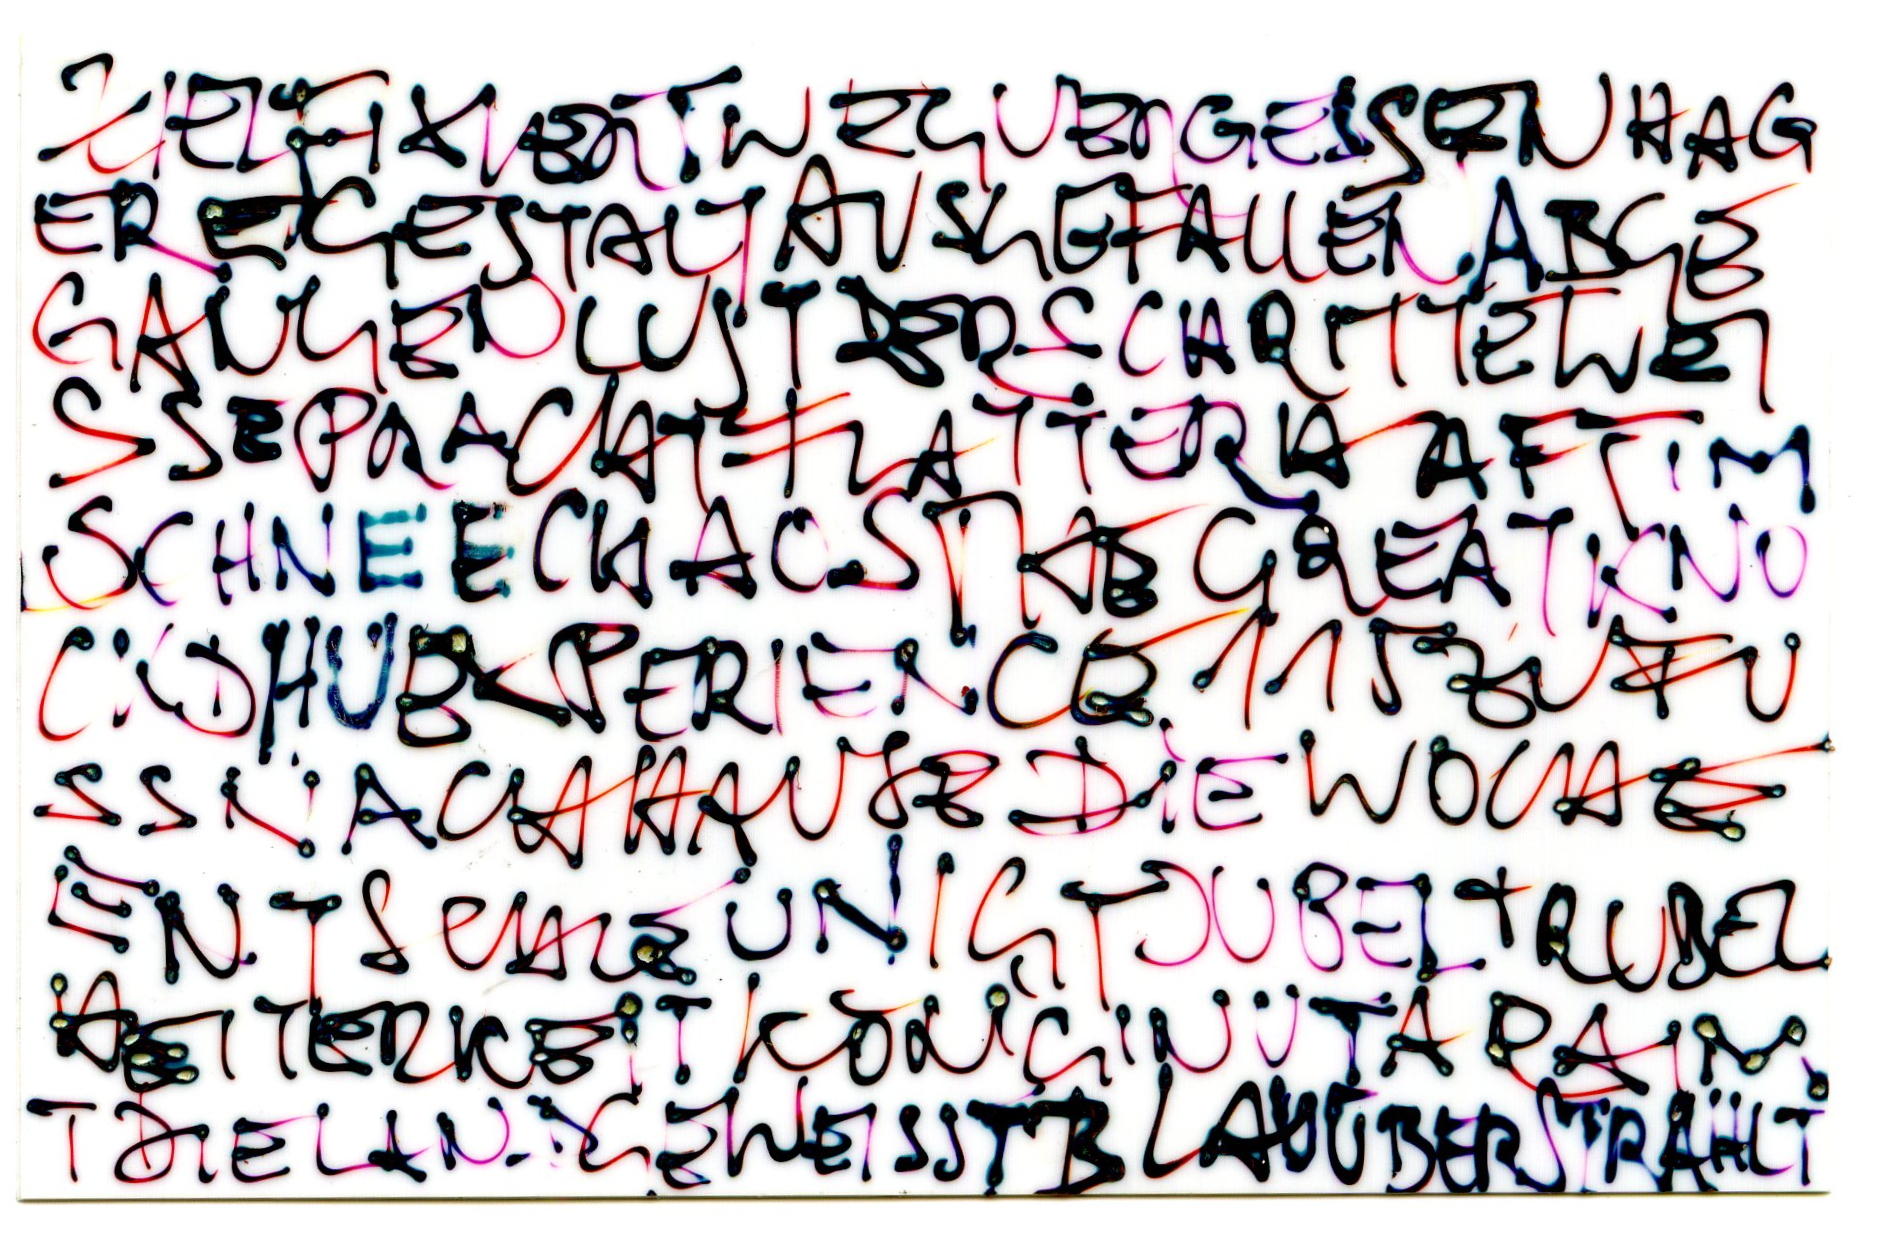 ZIELFIXIERT WEG VERGESSEN HAG
ERE GESTALT AUSGEFALLEN ABGE
GANGEN LUST DER SCHRITTE WEI
SSE PRACHT FLATTERHAFT IM
SCHNEECHAOS THE GREAT KNO
CKDHUB EXPERIENCE 115 ZU FU
SS NACH HAUSE DIE WOCHE
ENTSCHLEUNIGT JUBEL TRUBEL
HEITERKEIT KÖNIGIN UTA RÄUM
T DIE LAN GEWEISST BLAU ÜBERSTRAHLT